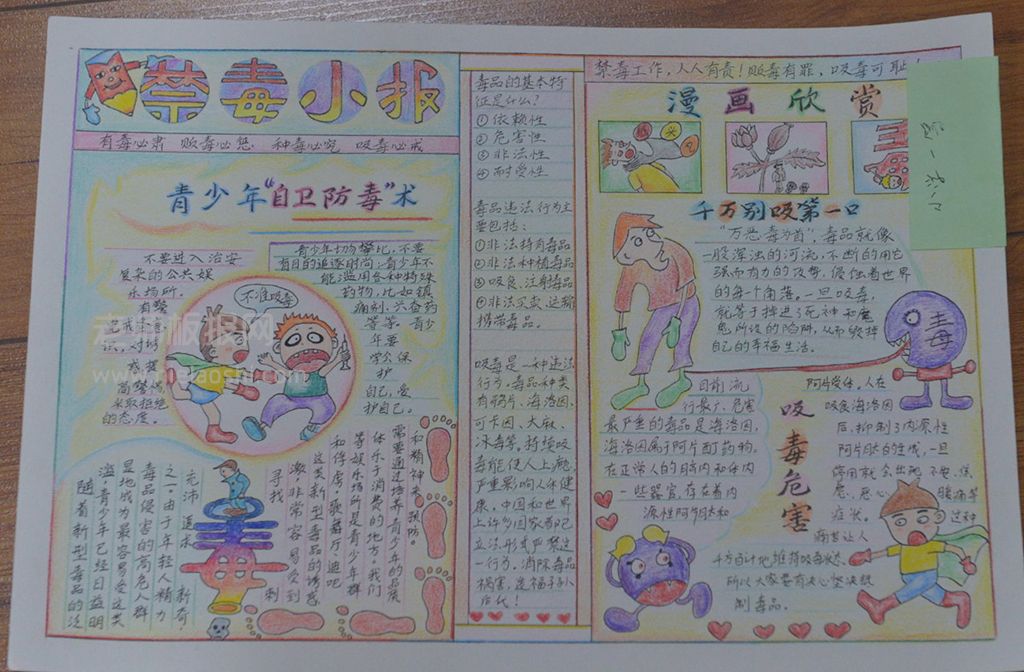 禁毒小报
有毒必肃 贩毒必惩 种毒必究 吸毒必戒
青少年“自卫防毒”术
不要进入治安
复杂的公共娱
乐场所。
青少年切勿攀比,不要
盲目的追逐时尚,青少年不
能滥用各种特殊
药物,比如镇
等等。青少
年要
学会保
护
自己,爱
护自己。
有警
觉戒备意
识,对诱
惑提
高警惕,
采取拒绝
的态度。
不准吸毒
老师板报网
随着新型毒品的泛
滥,青少年已经日益明
显地成为最容易受这类
毒品侵害的高危人群
之一。由于年轻人精力
充沛 追求 新奇,
寻找 刺
激,非常容易受到
这类新型毒品的诱惑
和俘虏,歌舞厅、迪吧
等娱乐场所是青少年群
体乐于消费的地方,我们
需要通过培养青少年的品质
和精神来预防。
毒
毒品的基本特
征是什么?
①依赖性
②危害性
③非法性
④耐受性
毒品违法行为主
要包括:
①非法持有毒品
②非法种植毒品
③吸食、注射毒品
④非法买卖、运输
携带毒品。
吸毒是一种违法
行为,毒品种类
有鸦片、海洛因、
可卡因、大麻、
冰毒等。持续吸
毒能使人上瘾,
严重影响人体健
康。中国和世界
上许多国家都已
立法形式严禁这
一行为。消除毒品
祸害,造福子孙
后代!
禁毒工作,人人有责!贩毒有罪,吸毒可耻!
漫画欣赏
千万别吸第一口
“万恶毒为首”,毒品就像
一股浑浊的河流,不断的用它
强而有力的攻势,侵蚀着世界
的每个角落。一旦吸毒,
就等于掉进了死神和魔
鬼所设的陷阱,从而毁掉
自己的幸福生活。
毒
吸毒危害
目前流
行最广、危害
最严重的毒品是海洛因,
海洛因属于阿片类药物。
在正常人的脑内和体内
一些器官,存在着内
源性阿片肽和
阿片受体。人在
吸食海洛因
后,抑制了内源性
阿片肽的生成,一旦
停用就会出现 不安、焦
虑、恶心 腹痛等
症状。 这种
痛苦让人
千方百计地维持吸毒状态。
所以大家要有决心坚决抵
制毒品。